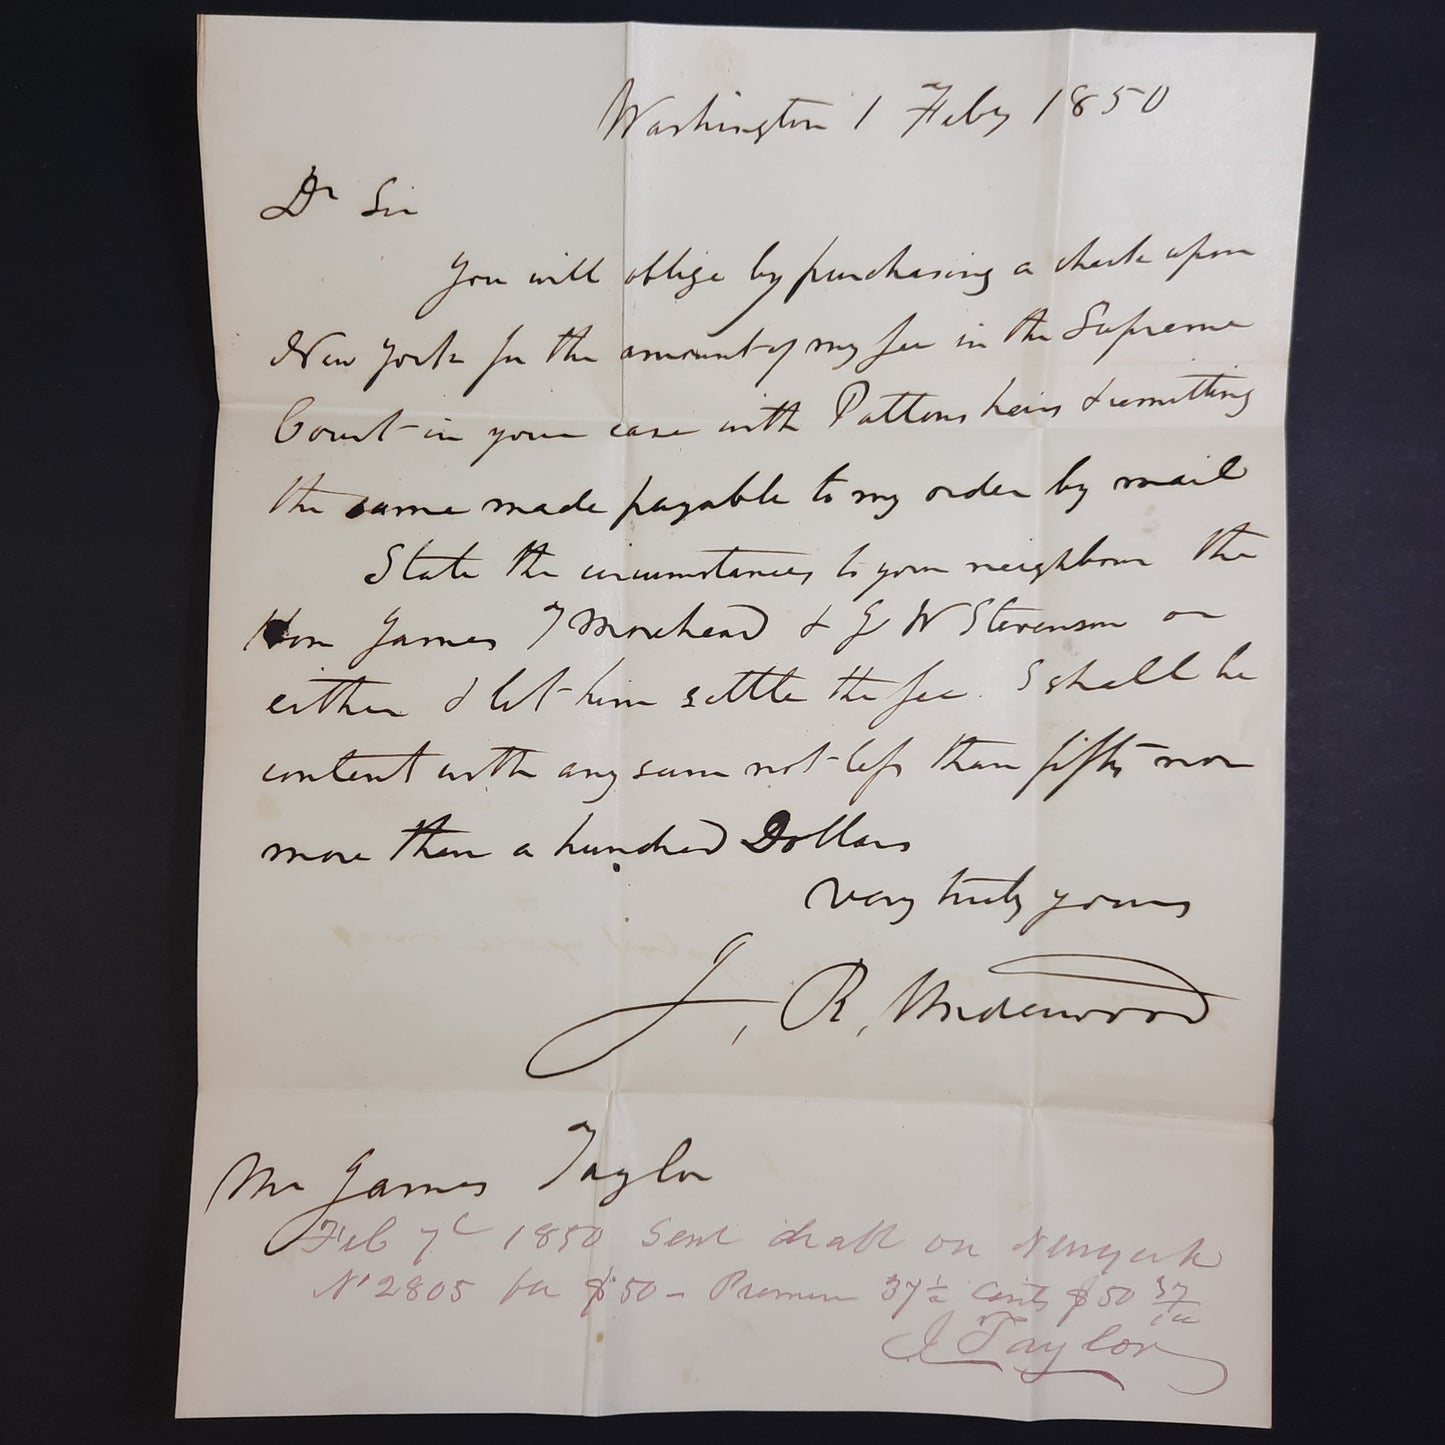 Washington 1 Feby 1850
Dr Sir
You will oblige by purchasing a check upon
New York for the amount of my fee in the Supreme
Court in your case with Pattons heirs & remitting
the same made payable to my order by mail
State the circumstances to your neighbour the
Hon James T Morehead & J W Stevenson or
either & let him settle the fee. I shall be
content with any sum not less than fifty nor
more than a hundred Dollars
Very truly yours
J. R. Underwood
Mr James Taylor
Feb 7th 1850 Sent draft on New york
No 2805 for $50 - Premium 37 1/2 Cents $50 37/100
J Taylor